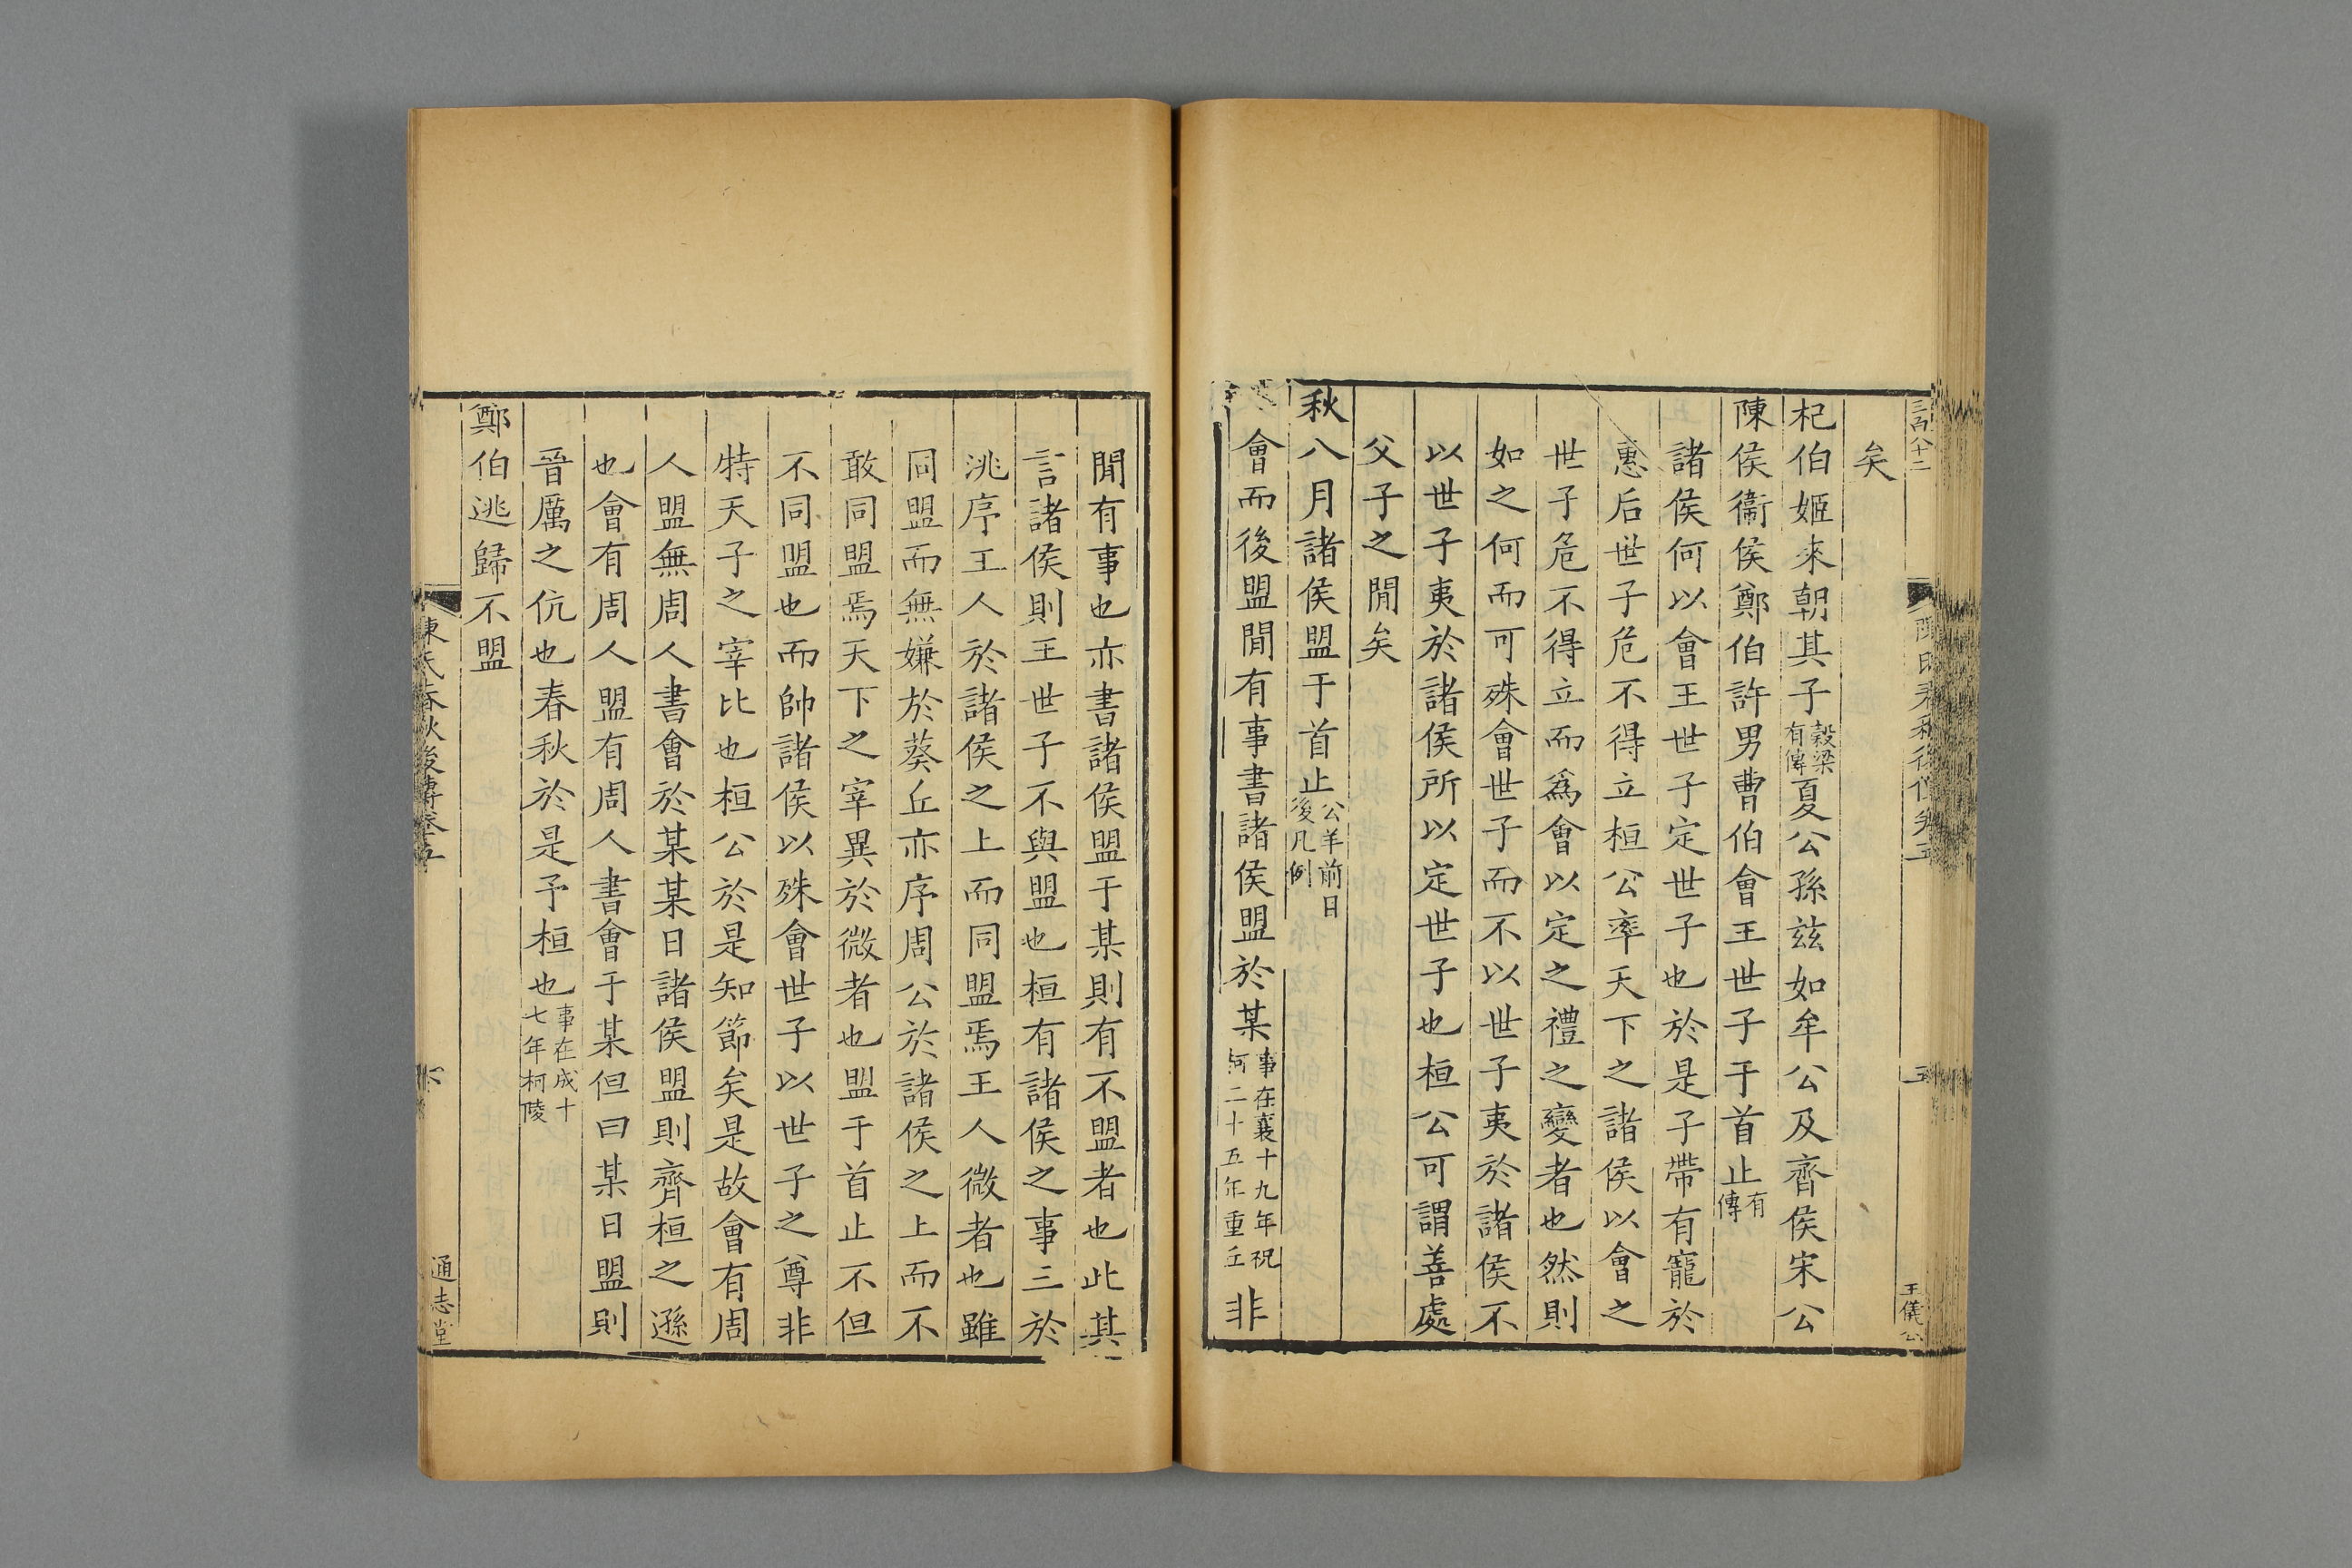 三百八十二
矣
杞伯姬來朝其子穀梁有傳夏公孫兹如牟公及齊侯宋公
陳侯衞侯鄭伯許男曹伯會王世子于首止有傳
諸侯何以會王世子定世子也於是子帶有寵於
惠后世子危不得立桓公率天下之諸侯以會之
世子危不得立而爲會以定之禮之變者也然則
如之何而可殊會世子而不以世子夷於諸侯不
以世子夷於諸侯所以定世子也桓公可謂善處
父子之閒矣
秋八月諸侯盟于首止公羊前日後凡例
會而後盟閒有事書諸侯盟於某事在襄十九年祝柯二十五年重丘非
王儀公
閒有事也亦書諸侯盟于某則有不盟者也此其
言諸侯則王世子不與盟也桓有諸侯之事三於
洮序王人於諸侯之上而同盟焉王人微者也雖
同盟而無嫌於葵丘亦序周公於諸侯之上而不
敢同盟焉天下之宰異於微者也盟于首止不但
不同盟也而帥諸侯以殊會世子以世子之尊非
特天子之宰比也桓公於是知節矣是故會有周
人盟無周人書會於某某日諸侯盟則齊桓之遜
也會有周人盟有周人書會于某但曰某日盟則
晉厲之伉也春秋於是予桓也事在成十七年柯陵
鄭伯逃歸不盟
陳氏春秋後傳卷五
六
通志堂